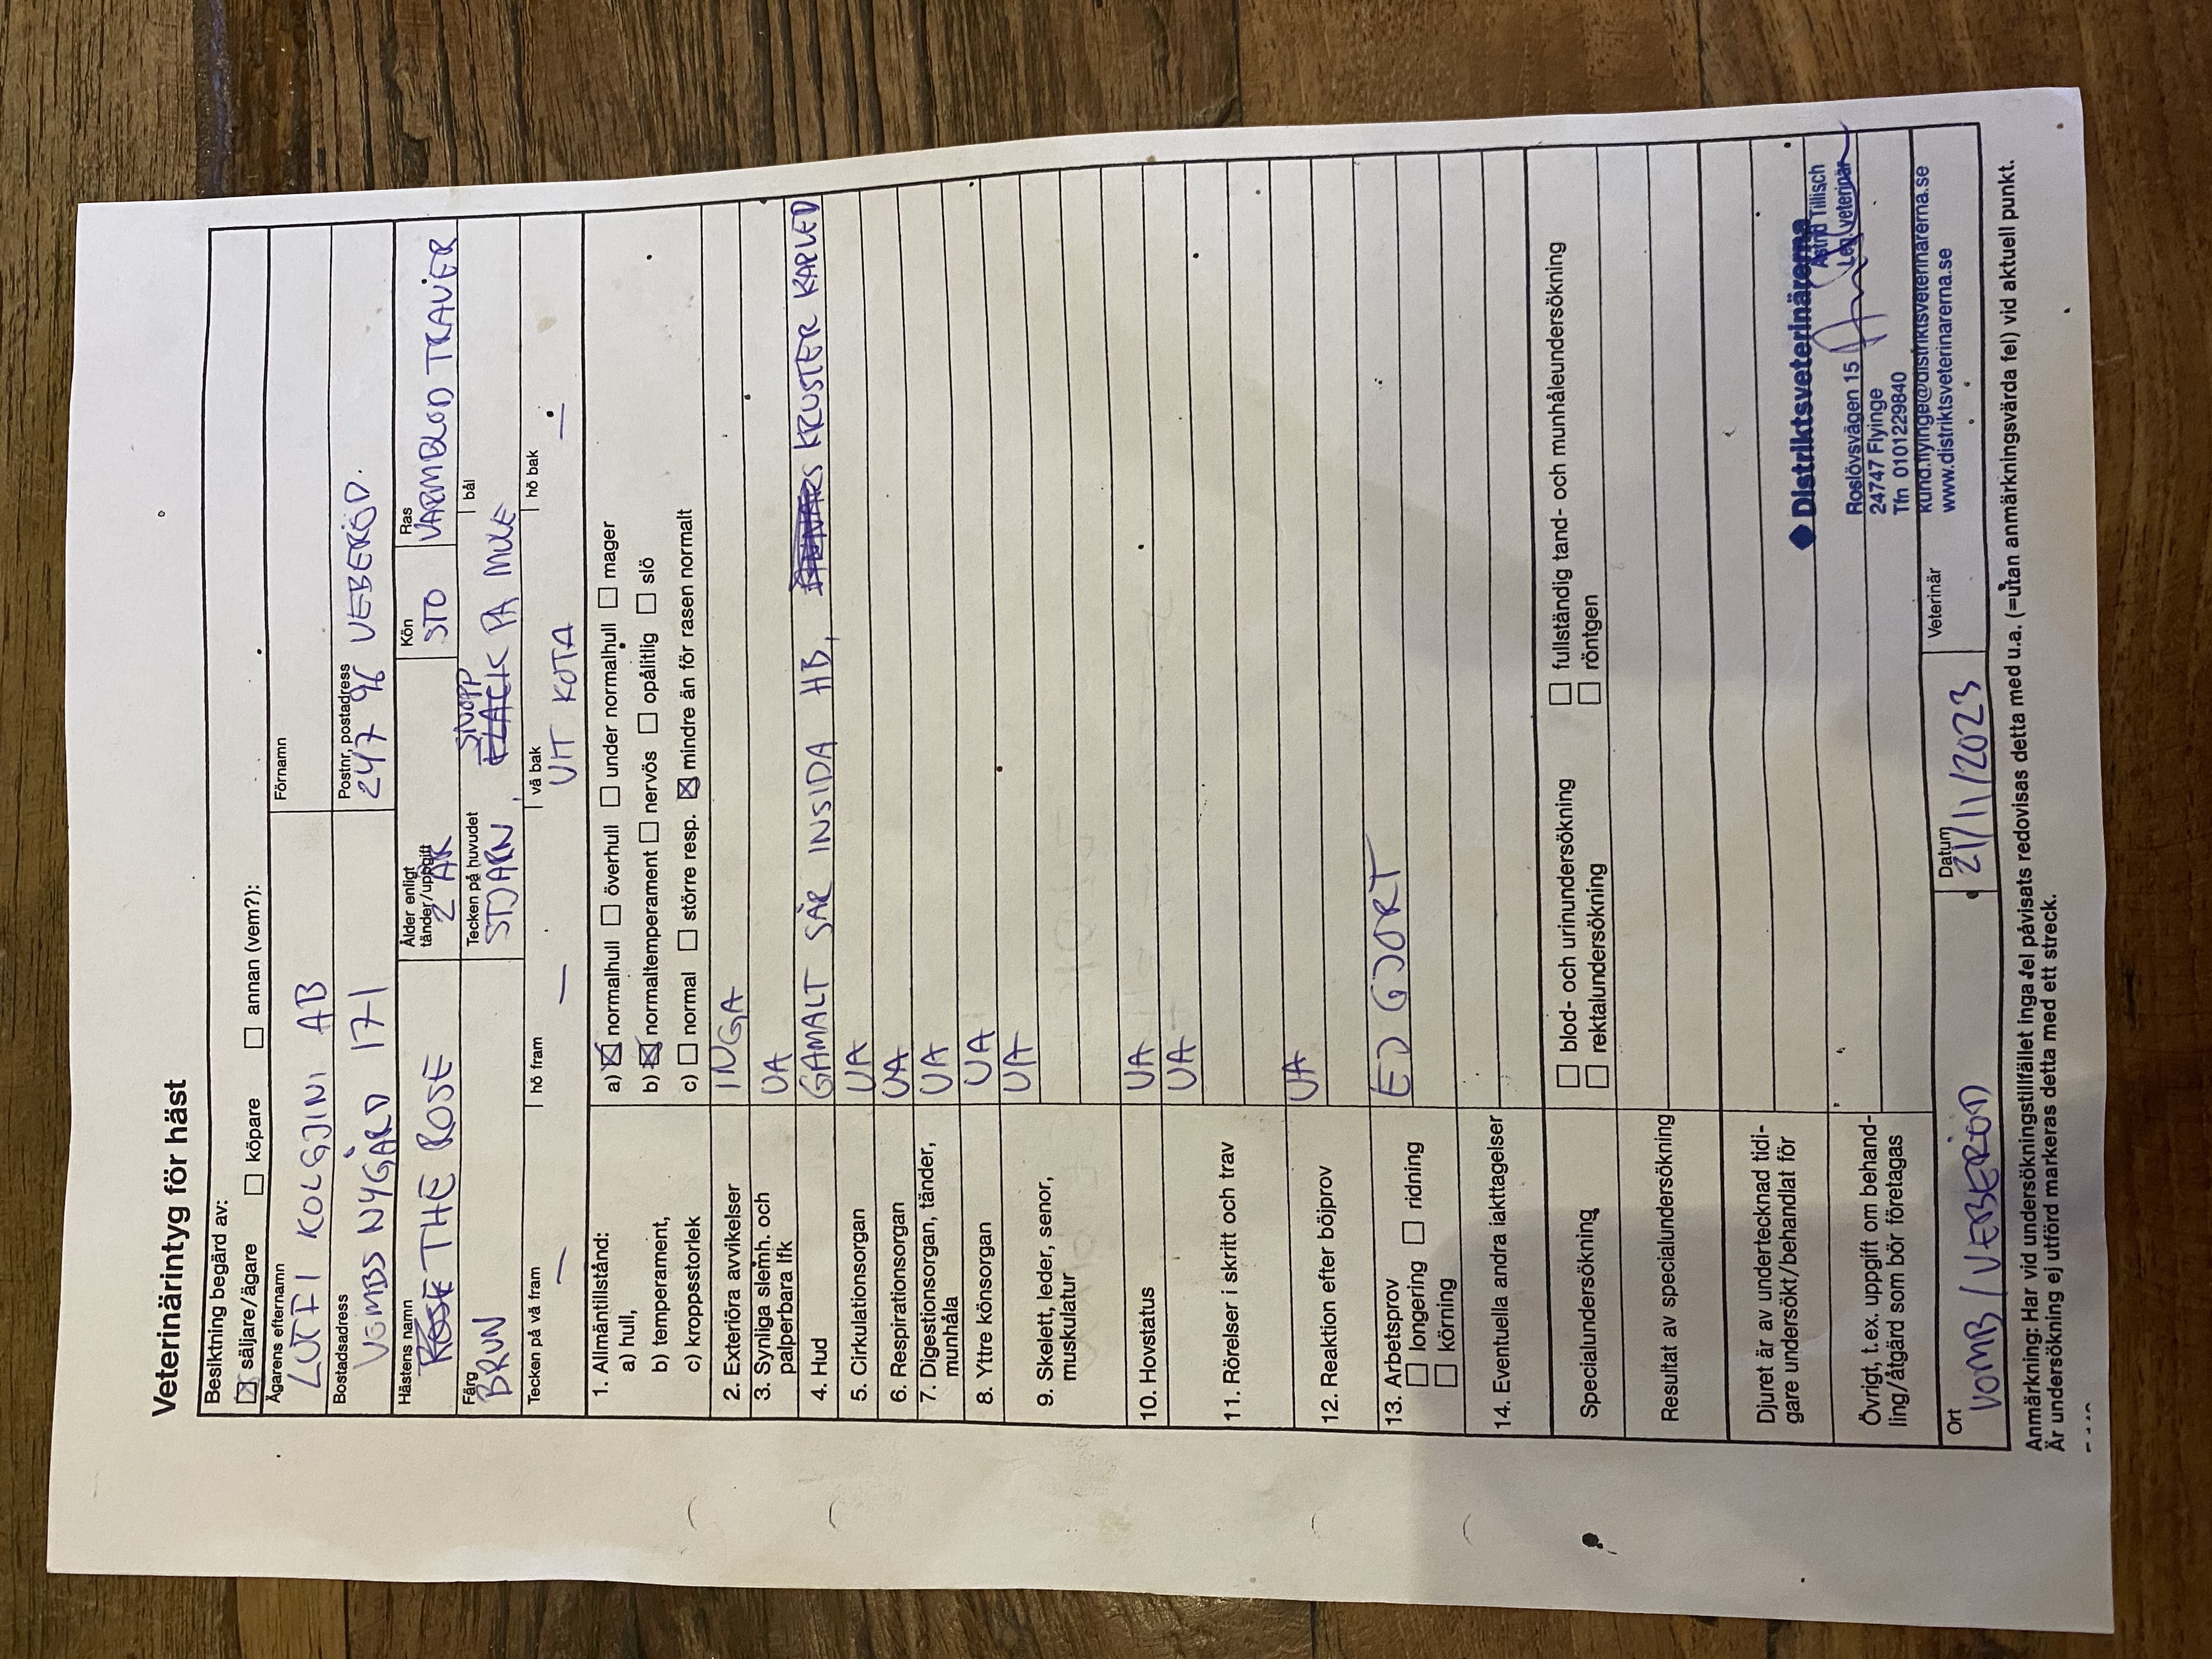 Veterinärintyg för häst
Besiktning begärd av:
☒ säljare/ägare ☐ köpare ☐ annan (vem?):
Ägarens efternamn Förnamn
LUTFI KOLGJINI AB
Bostadsadress Postnr, postadress
VOMBS NYGÅRD 171 247 96 VEBERÖD.
Hästens namn Ålder enligt tänder/uppgift Kön Ras
THE ROSE 2 ÅR STO VARMBLOD TRAVER
Färg Tecken på huvudet bål
BRUN STJÄRN, SNOPP PÅ MULE
Tecken på vä fram hö fram vä bak hö bak
— — VIT KOTA —
1. Allmäntillstånd:
a) hull, a) ☒ normalhull ☐ överhull ☐ under normalhull ☐ mager
b) temperament, b) ☒ normaltemperament ☐ nervös ☐ opålitlig ☐ slö
c) kroppsstorlek c) ☐ normal ☐ större resp. ☒ mindre än för rasen normalt
2. Exteriöra avvikelser INGA
3. Synliga slemh. och palperbara lfk UA
4. Hud GAMALT SÅR INSIDA HB, KRUSTER KARLED
5. Cirkulationsorgan UA
6. Respirationsorgan UA
7. Digestionsorgan, tänder, munhåla UA
8. Yttre könsorgan UA
9. Skelett, leder, senor, muskulatur UA
10. Hovstatus UA
11. Rörelser i skritt och trav UA
12. Reaktion efter böjprov UA
13. Arbetsprov EJ GJORT
☐ longering ☐ ridning
☐ körning
14. Eventuella andra iakttagelser
Specialundersökning ☐ blod- och urinundersökning ☐ fullständig tand- och munhåleundersökning
☐ rektalundersökning ☐ röntgen
Resultat av specialundersökning
Djuret är av undertecknad tidi-
gare undersökt/behandlat för
Övrigt, t.ex. uppgift om behand-
ling/åtgärd som bör företagas
Distriktsveterinärerna
Astrid Tillisch
Leg. veterinär
Roslövsvägen 15
24747 Flyinge
Tfn 0101229840
kund.flyinge@distriktsveterinarerna.se
www.distriktsveterinarerna.se
Ort Datum Veterinär
VOMB/VEBERÖD 21/1/2023
Anmärkning: Har vid undersökningstillfället inga fel påvisats redovisas detta med u.a. (=utan anmärkningsvärda fel) vid aktuell punkt.
Är undersökning ej utförd markeras detta med ett streck.